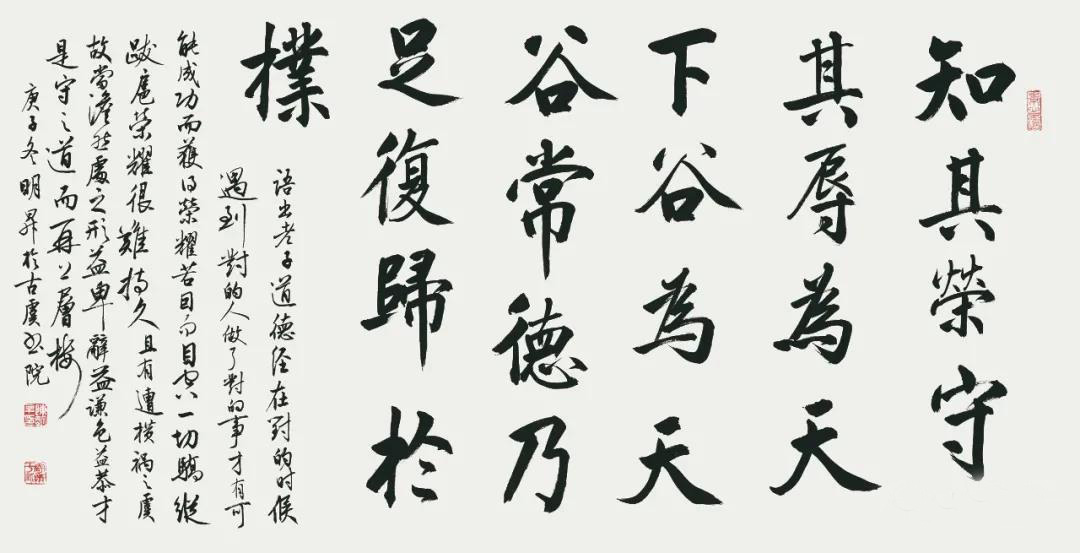 知其榮守
其辱為天
下谷為天
谷常德乃
足復歸於
樸
語出老子道德经在對的时候
遇到對的人做了對的事才有可
能成功而获得榮耀若因而目空一切驕縱
跋扈榮耀很難持久且有遭横禍之虞
故當澹然處之形益卑辭益谦色益恭才
是守之道而再上層楼
庚子冬明昇於古虞书院